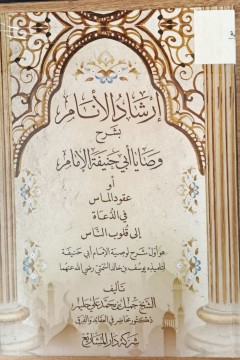 إرشاد الأنام
بشرح
وصايا أبي حنيفة الإمام
أو
عقود الماس
في الدعاة
إلى قلوب الناس
هو أول شرح لوصية الإمام أبي حنيفة
لتلميذه يوسف بن خالد السمتي رضي الله عنهما
تأليف
الشيخ جميل بن محمد علي حليم
دكتور محاضر في العقائد والفرق
شركة دار المشاريع